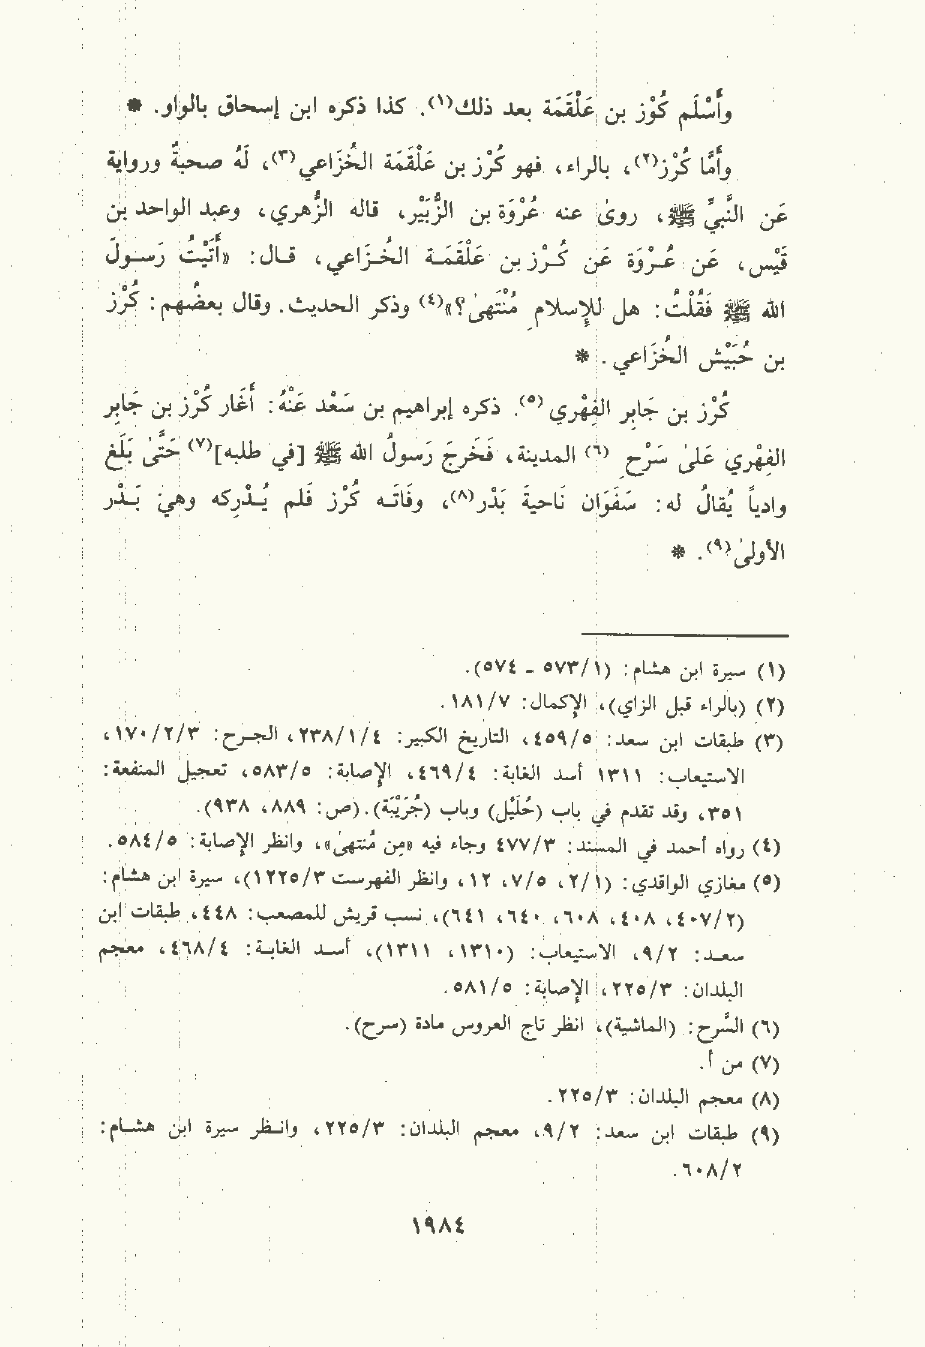 وأَسْلَم كُوْز بن عَلْقَمَة بعد ذلك(١). كذا ذكره ابن إسحاق بالواو. *
وأَمَّا كُرْز(٢)، بالراء، فهو كُرْز بن عَلْقَمَة الخُزَاعي(٣)، لَهُ صحبةٌ ورواية
عَن النَّبيِّ ﷺ، روىٰ عنه عُرْوَة بن الزُّبَيْر، قاله الزُّهري، وعبد الواحد بن
قَيْس، عَن عُـرْوَة عَن كُـرْز بن عَلْقَمَـة الخُـزَاعي، قـال: «أَتَيْتُ رَسـولَ
الله ﷺ فَقُلْتُ: هل للإِسلامِ مُنْتَهىٰ؟»(٤) وذكر الحديث. وقال بعضُهم: كُرْز
بن حُبَيْش الخُزَاعي. *
كُرْز بن جَابِر الفِهْري(٥). ذكره إبراهيم بن سَعْد عَنْهُ: أَغَار كُرْز بن جَابِر
الفِهْري عَلىٰ سَرْحِ(٦) المدينة، فَخَرجَ رَسولُ الله ﷺ [في طلبه](٧) حَتَّىٰ بَلَغ
وادياً يُقالُ له: سَفَوَان نَاحيةَ بَدْر(٨)، وفَاتَـه كُرْز فَلم يُـدْرِكه وهيَ بَـدْر
الأولىٰ(٩). *
(١) سيرة ابن هشام: (١/٥٧٣ ـ ٥٧٤).
(٢) (بالراء قبل الزاي)، الإكمال: ٧/١٨١.
(٣) طبقات ابن سعد: ٥/٤٥٩، التاريخ الكبير: ٤/١/٢٣٨، الجـرح: ٣/٢/١٧٠،
الاستيعاب: ١٣١١ أسد الغابة: ٤/٤٦٩، الإصابة: ٥/٥٨٣، تعجيل المنفعة:
٣٥١، وقد تقدم في باب (حُلَيْل) وباب (جُرَيْبَة). (ص: ٨٨٩، ٩٣٨).
(٤) رواه أحمد في المسند: ٣/٤٧٧ وجاء فيه «مِن مُنتهىٰ»، وانظر الإصابة: ٥/٥٨٤.
(٥) مغازي الواقدي: (١/٢، ٥/٧، ١٢، وانظر الفهرست ٣/١٢٢٥)، سيرة ابن هشام:
(٢/٤٠٧، ٤٠٨، ٦٠٨، ٦٤٠، ٦٤١)، نسب قريش للمصعب: ٤٤٨، طبقات ابن
سعـد: ٢/٩، الاستيعاب: (١٣١٠، ١٣١١)، أسـد الغابـة: ٤/٤٦٨، معجم
البلدان: ٣/٢٢٥، الإصابة: ٥/٥٨١.
(٦) السَّرح: (الماشية)، انظر تاج العروس مادة (سرح).
(٧) من أ.
(٨) معجم البلدان: ٣/٢٢٥.
(٩) طبقات ابن سعد: ٢/٩، معجم البلدان: ٣/٢٢٥، وانـظر سيرة ابن هشـام:
٢/٦٠٨.
١٩٨٤